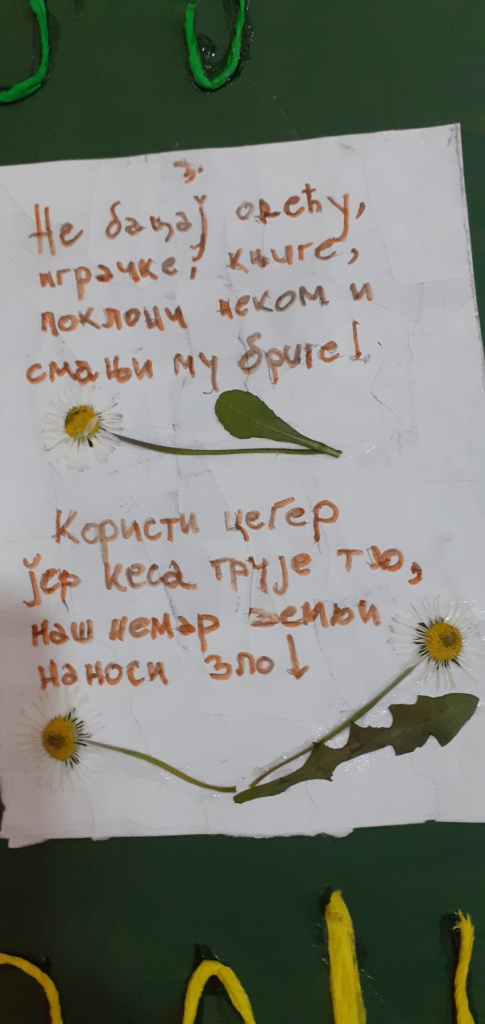 3.
Не бацај одећу,
играчке, књиге,
поклони неком и
смањи му бриге!
Користи цегер
јер кеса трује тло,
наш немар земљи
наноси зло!